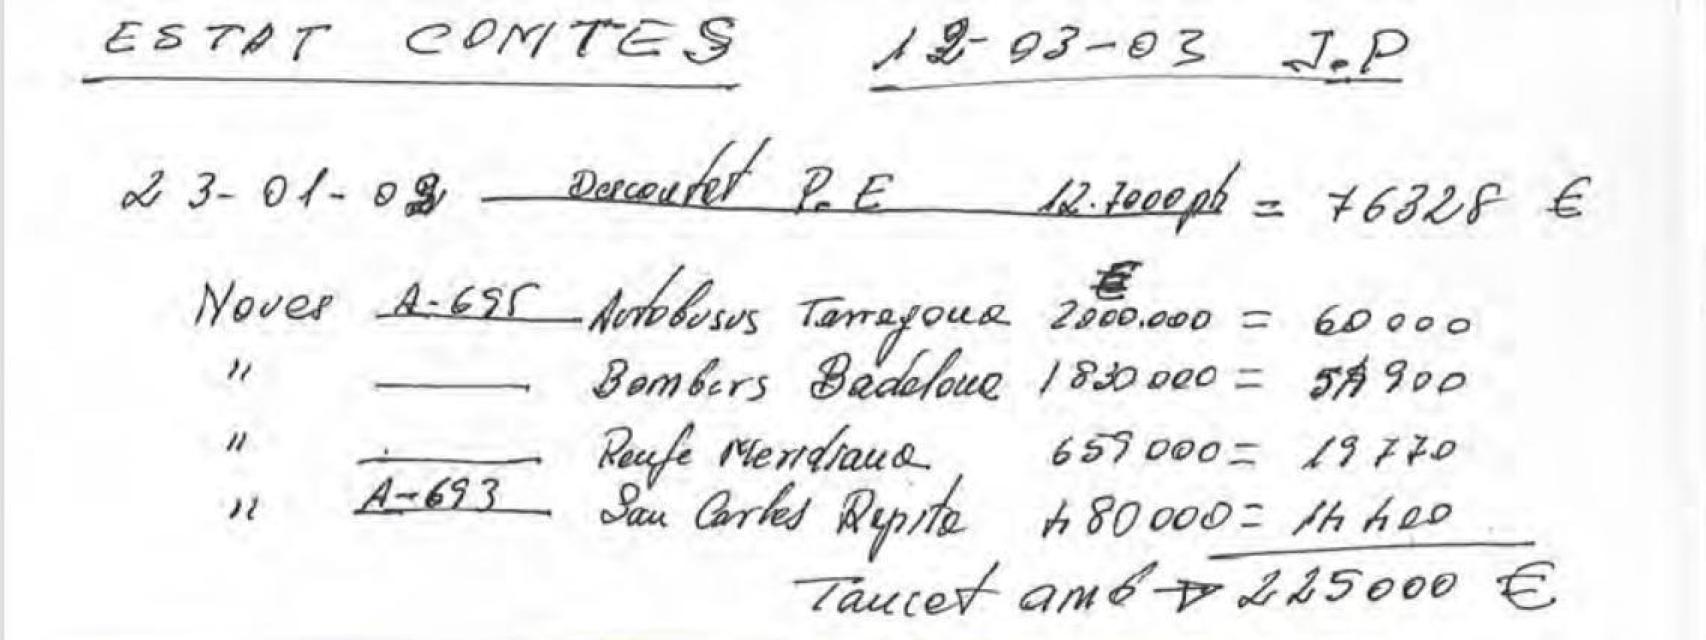 ESTAT COMTES 12-03-03 J.P
23-01-03 Descomtat P.E 12.7000 pts = 76328 €
Noves A-695 Autobusus Tarragona 2000.000 = 60000
" Bombers Badalona 1830000 = 54900
" Renfe Meridiana 659000 = 19770
" A-693 San Carles Rapita 480000 = 14400
Tancat amb → 225000 €